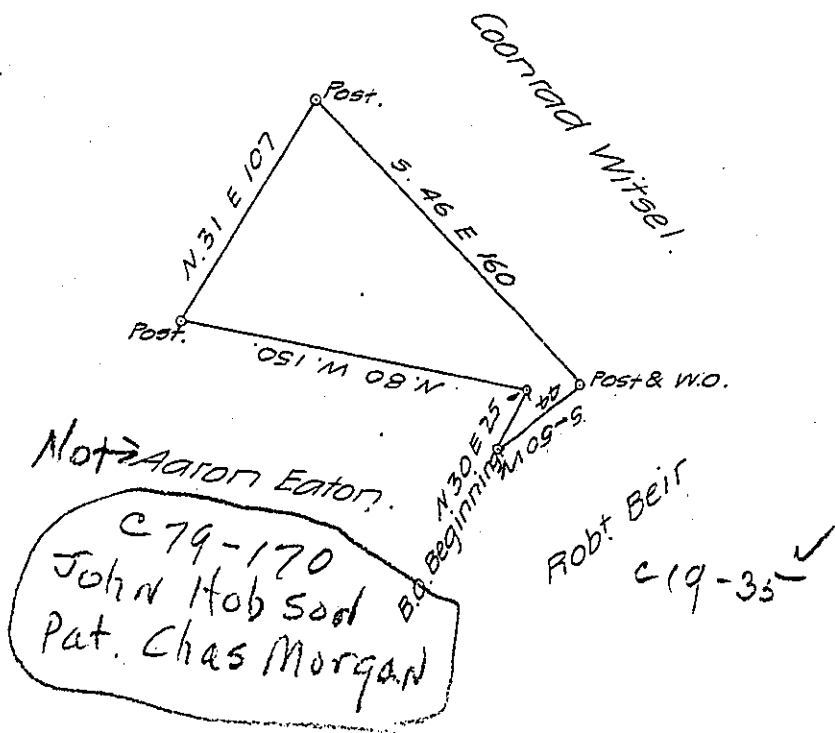 Coonrad Witsel.
Post.
N.31 E 107
S. 46 E 160
Post.
N.80 W.150.
Post & W.O.
S-50 W 44
N 30 E 25
B.O. Beginning
Not → Aaron Eaton.
Robt Beir
C19-35
C79-170
John Hobson
Pat. Chas Morgan